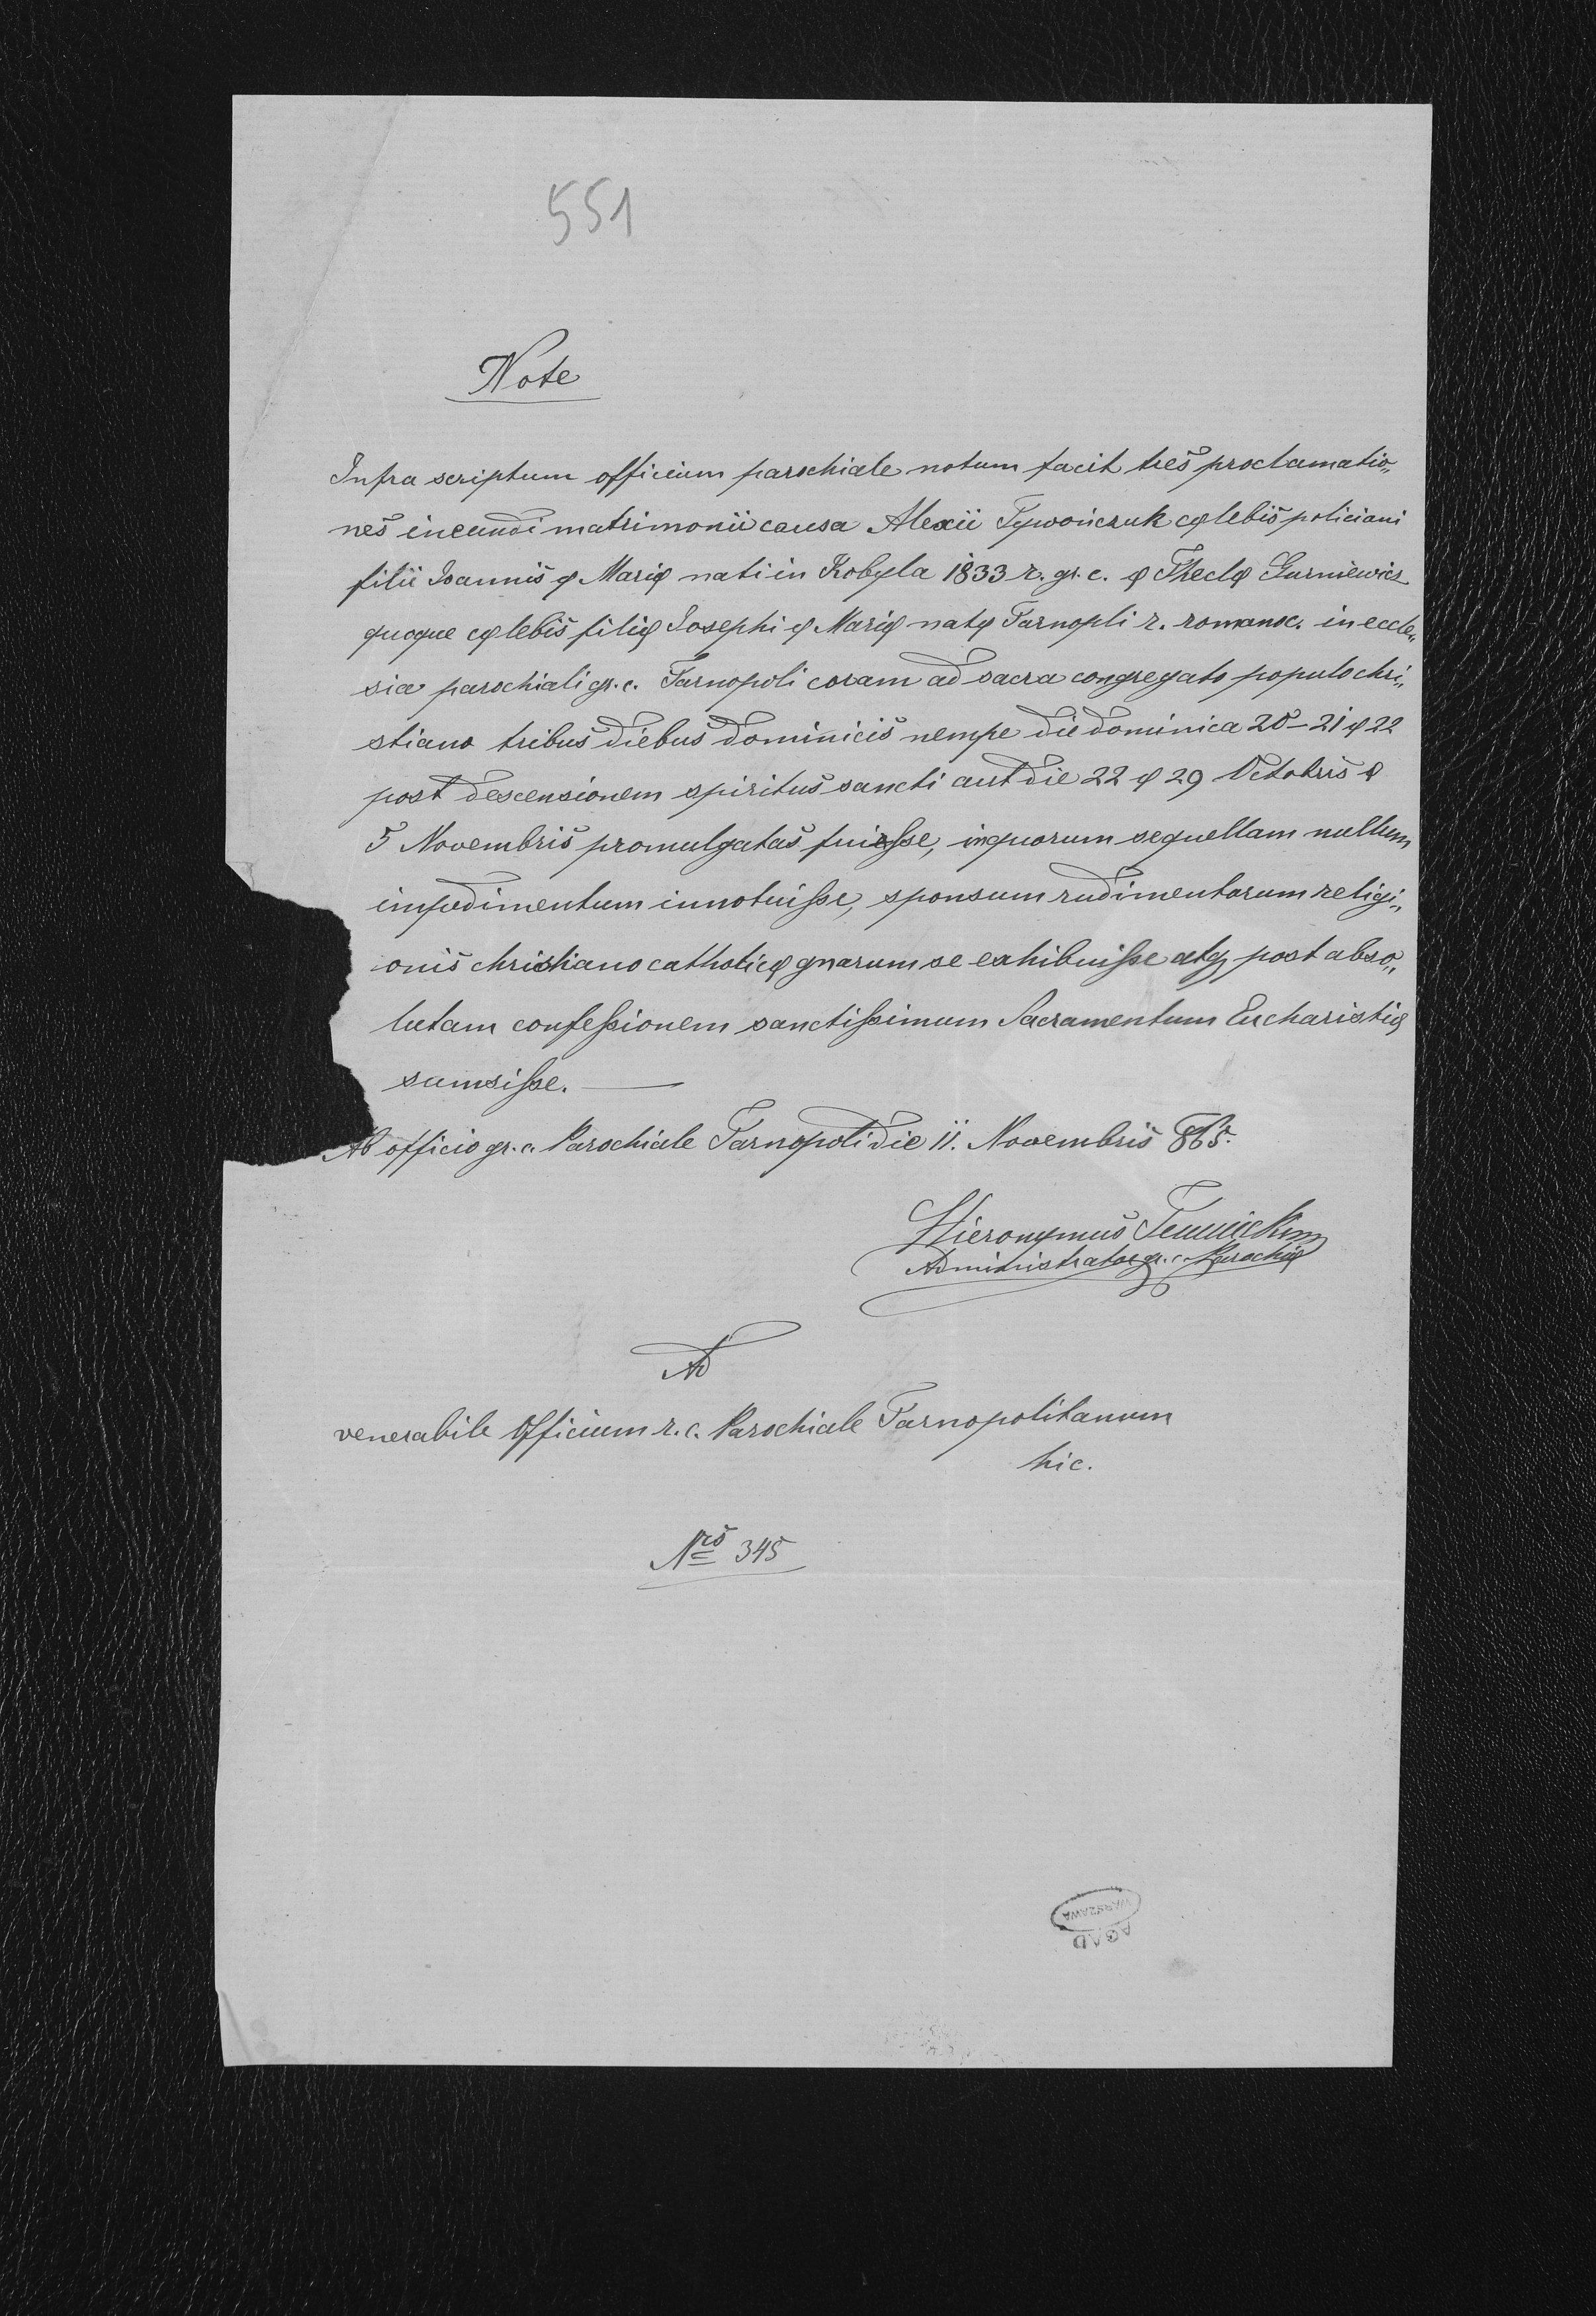 551
Note
Infra scriptum officium parochiale notum facit tres proclamatio„
nes ineundi matrimonii causa Alexii Tywończuk cęlebis policiani
filii Joannis & Marię nati in Kobyla 1833 r. gr. c. & Theclę Gurniewicz
quoque cęlebis filię Josephi & Marię natę Tarnopli r. romano c. in eccle„
sia parochiali gr. c. Tarnopoli coram ad sacra congregato populo chri„
stiano tribus diebus dominicis nempe die dominica 20 – 21 & 22
post descensionem spiritus sancti aut die 22 & 29 Octobris &
5 Novembris promulgatas fuisse, in quorum sequellam nullum
impedimentum innotuisse, sponsum rudimentorum religi„
onis christiano catholicę gnarum se exhibuisse atq post abso„
lutam confessionem sanctissimum Sacramentum Eucharistię
sumsisse. —
Ab officio gr. c. Parochiale Tarnopoli die 11. Novembris 865.
Hieronymus
Administrator gr. c. Parochię
Ad
venerabile Officium r. c. Parochiale Tarnopolitanum
hic.
Nro 345
WARSZAWA
AGAD